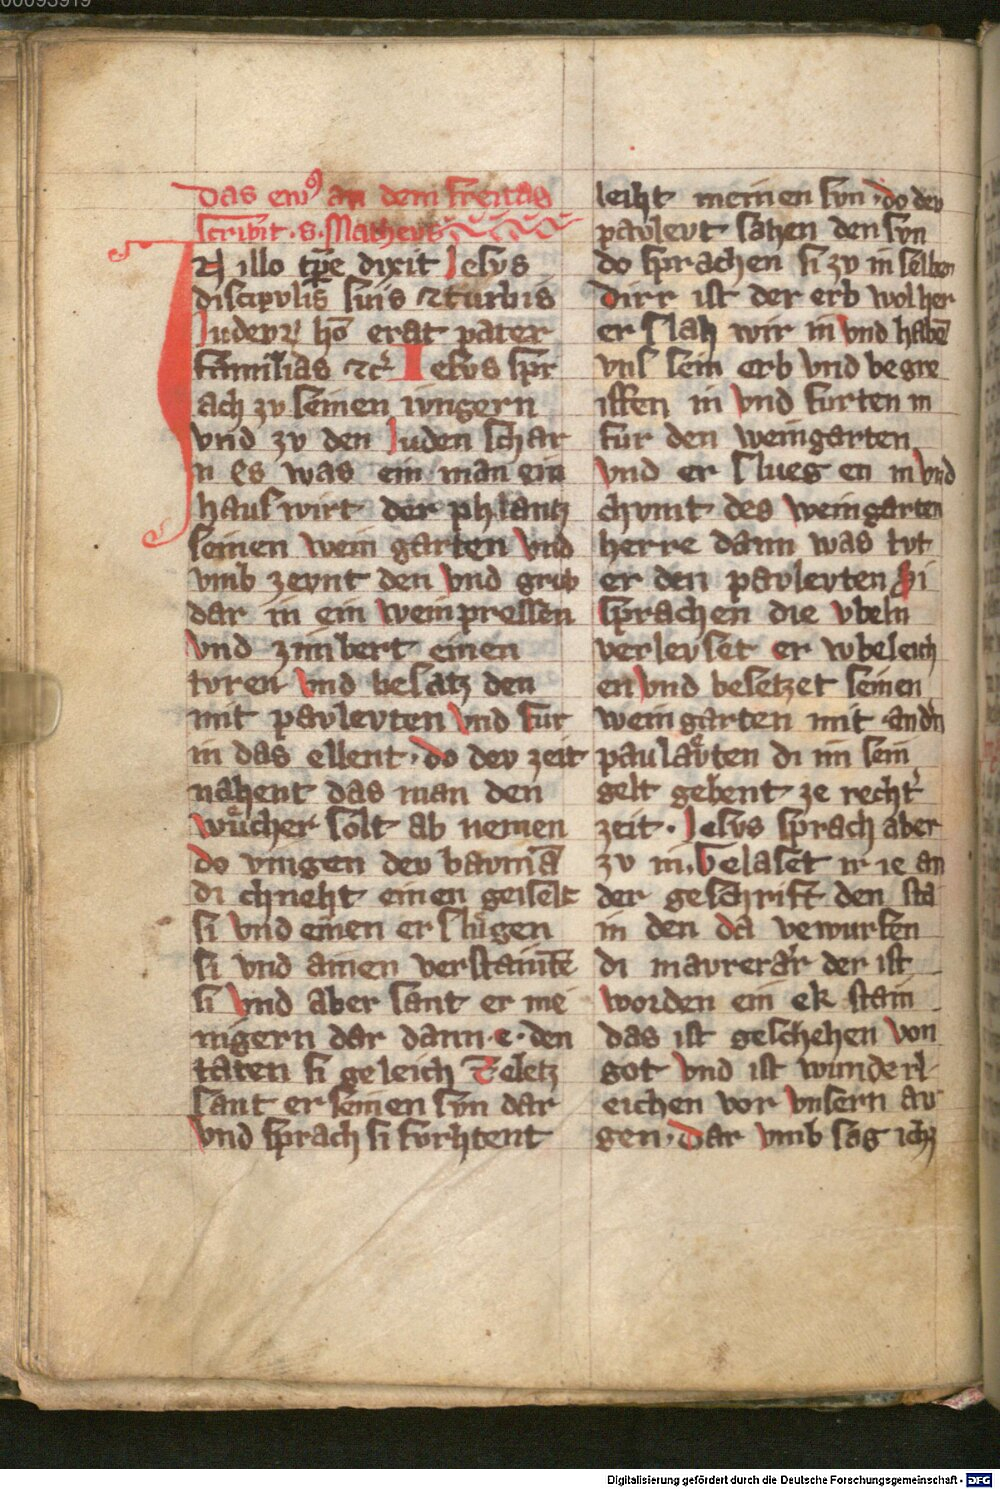 00093919
Das ewꝰ an dem freitag
scribit · S · Matheus
IN illo tp̄e dixit Jesvs
discipvlis suis ⁊ turbis
Judeoꝝ hō erat pater
familias ⁊cͬ Iesvs spr
ach zv seinen ivngern
vnd zv den Juden schar
n Es was ein man ein
haus wirt der phlantz
seinen wein garten vnd
vmb zevnt den vnd grub
dar in ein weinpressen
vnd zimbert einen
tvren vnd besatz den
mit pavlevten vnd fur
in das ellent · do dev zeit
nahent das man den
wuͦcher solt ab nemen
do viengen dev bavmā
di chneht einen geiselt
si vnd einen er slugen
si vnd ainen verstaintē
si vnd aber sant er me
nigern dar dann · e · den
taten si geleich Zeletz
sant er seinen svn dar
vnd sprach si fvrhtent
leiht meinen svn · do dev
pavlevt sahen den svn
do sprachen si zv in selben
Dirr ist der erb wol her
er slah wir in vnd habē
vns sein erb vnd begre
iffen in vnd furten in
fur den weingarten
vnd er slueg en in vnd
chvmt des weingarten
herre dann was tvt
er den pavlevten Si
sprachen die vbeln
verlevset er vbeleich
en vnd besetzet seinen
weingarten mit andn̄
paulaͤvten di im sein
gelt gebent ze recht̉
zeit · Jesvs sprach aber
zv in. Gelaset ir ie an
der geschrift den sta
in den da vewurfen
di mavrerär der ist
worden ein ek stain
das ist geschehen von
got vnd ist wunderl
eichen vor vnsern av
gen · Dar vmb sag ichz
Digitalisierung gefördert durch die Deutsche Forschungsgemeinschaft - DFG